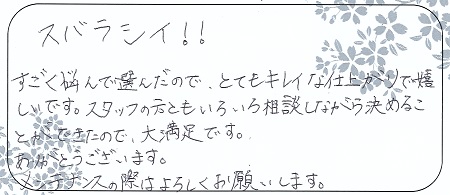 スバラシイ!!
すごく悩んで選んだので、とてもキレイな仕上がりで嬉
しいです。スタッフの方ともいろいろ相談しながら決めるこ
とができたので、大満足です。
ありがとうございます。
メンテナンスの際はよろしくお願いします。